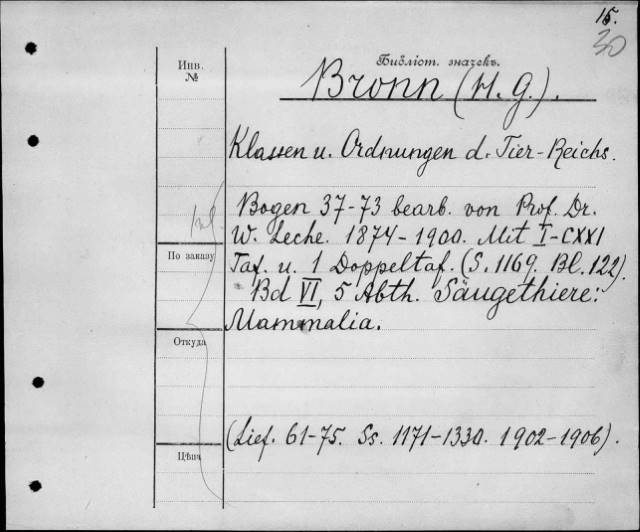 15.
30
Инв.
№
Библіот. значекъ.
Bronn (H. G.).
Klassen u. Ordnungen d. Tier-Reichs.
Bogen 37-73 bearb. von Prof. Dr.
W. Leche. 1874-1900. Mit I-CXXI
По заказу
Taf. u. 1 Doppeltaf. (S. 1169. Bl. 122).
Bd VI, 5 Abth. Säugethiere:
Mammalia.
Откуда
(Lief. 61-75. Ss. 1171-1330. 1902-1906).
Цѣна